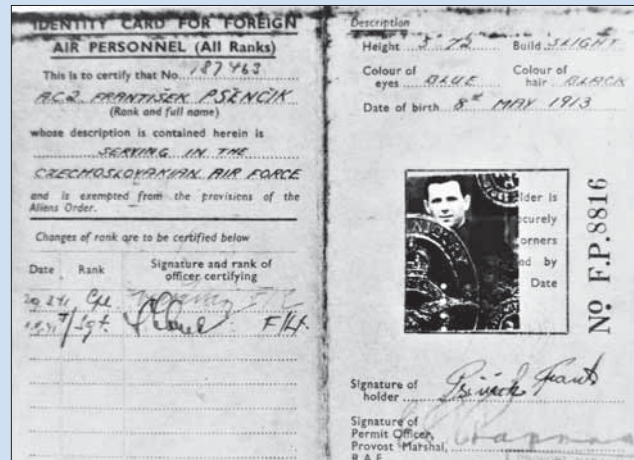 IDENTITY CARD FOR FOREIGN
AIR PERSONNEL (All Ranks)
This is to certify that No. 787463
A.C.2. FRANTIŠEK PŠENČIK
(Rank and full name)
whose description is contained herein is
SERVING IN THE
CZECHOSLOVAKIAN AIR FORCE
and is exempted from the provisions of the
Aliens Order.
Changes of rank are to be certified below
Date Rank Signature and rank of
officer certifying
Cpl.
T/Sgt. F/Lt.
Description
Height 5' 7½ Build SLIGHT
Colour of eyes BLUE Colour of hair BLACK
Date of birth 8th MAY 1913
lder is
ecurely
orners
ed by
Date
No F.P. 8816
Signature of
holder
Signature of
Permit Officer,
Provost Marshal,
R.A.F.